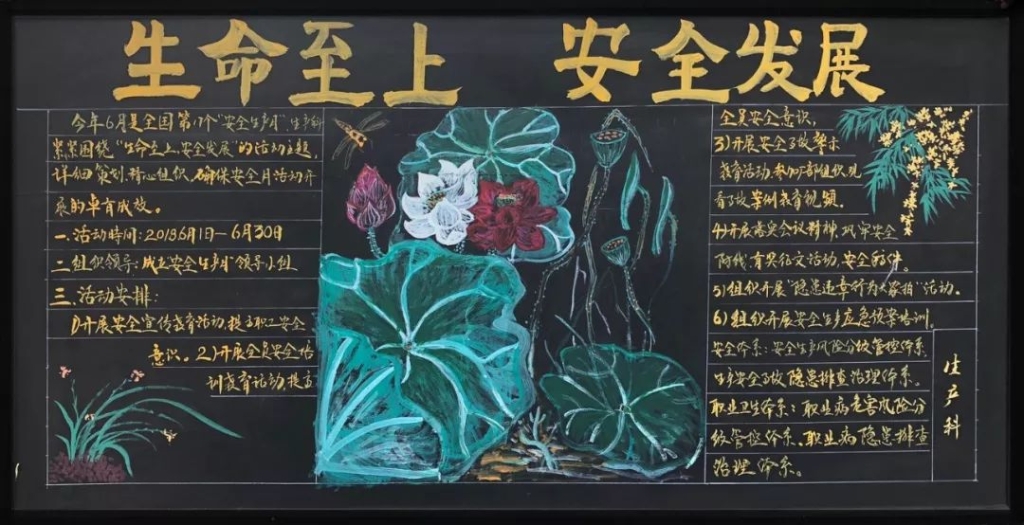 生命至上 安全发展
今年6月是全国第17个"安全生产月",生产科
紧紧围绕"生命至上,安全发展"的活动主题,
详细策划,精心组织,确保安全月活动开
展的卓有成效。
一.活动时间:2018.6月1日—6月30日
二.组织领导:成立"安全生产月"领导小组
三.活动安排:
1)开展安全宣传教育活动,提高职工安全
意识。2)开展全员安全培
训教育活动,提高
全员安全意识,
3)开展安全事故警示
教育活动,参加部组织观
看事故案例教育视频。
4)开展落实会议精神,巩牢安全
防线,有奖征文活动,安全
5)组织开展"隐患违章行为大家拍"活动。
6)组织开展安全生产应急预案培训。
安全体系:安全生产风险分级管控体系
生产安全事故隐患排查治理体系。
职业卫生体系:职业病危害风险分
级管控体系、职业病隐患排查
治理体系。
生产科